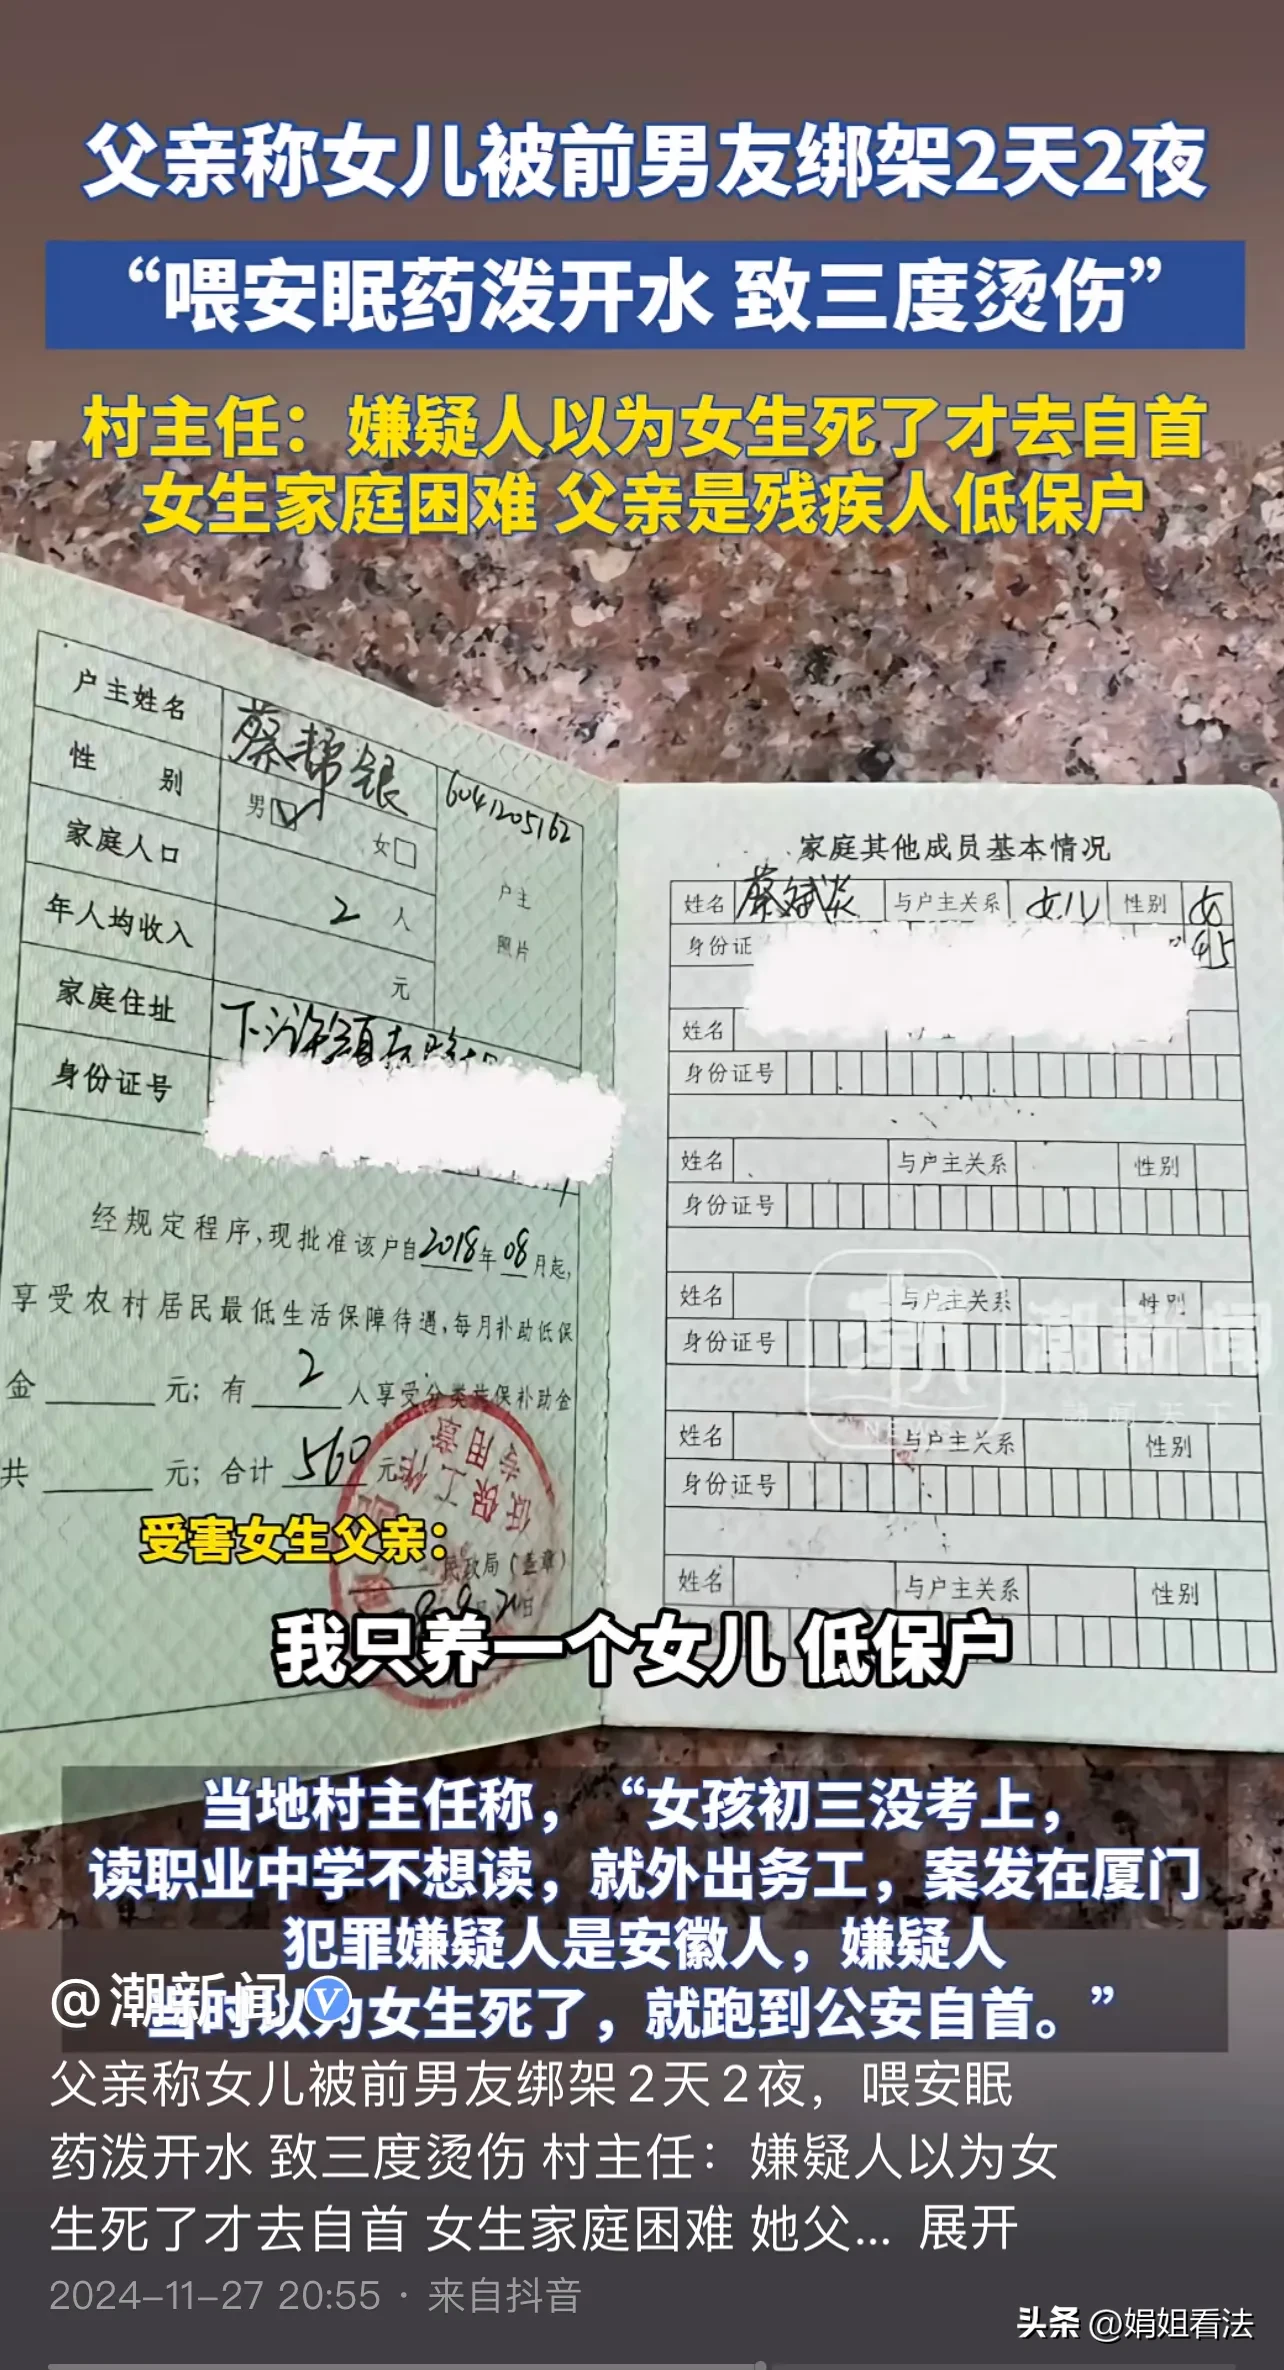 父亲称女儿被前男友绑架2天2夜
“喂安眠药泼开水 致三度烫伤”
村主任：嫌疑人以为女生死了才去自首
女生家庭困难 父亲是残疾人低保户
户主姓名
6041205162
性 别 男 女
家庭人口 2 人
户主
照片
年人均收入 元
家庭住址
身份证号
经规定程序,现批准该户自2018年08月起,
享受农村居民最低生活保障待遇,每月补助低保
金 元; 有 2 人享受分类施保补助金
共 元; 合计 560 元
民政局(盖章)
家庭其他成员基本情况
姓名 与户主关系 女儿 性别 女
身份证
姓名
身份证号
姓名 与户主关系 性别
身份证号
姓名 与户主关系 性别
身份证号
姓名 与户主关系 性别
身份证号
姓名 与户主关系 性别
潮新闻
NEWS
受害女生父亲：
我只养一个女儿 低保户
当地村主任称，“女孩初三没考上，
读职业中学不想读，就外出务工，案发在厦门
犯罪嫌疑人是安徽人，嫌疑人
当时以为女生死了，就跑到公安自首。”
@潮新闻
父亲称女儿被前男友绑架2天2夜，喂安眠
药泼开水 致三度烫伤 村主任：嫌疑人以为女
生死了才去自首 女生家庭困难 她父... 展开
2024-11-27 20:55 · 来自抖音
头条 @娟姐看法